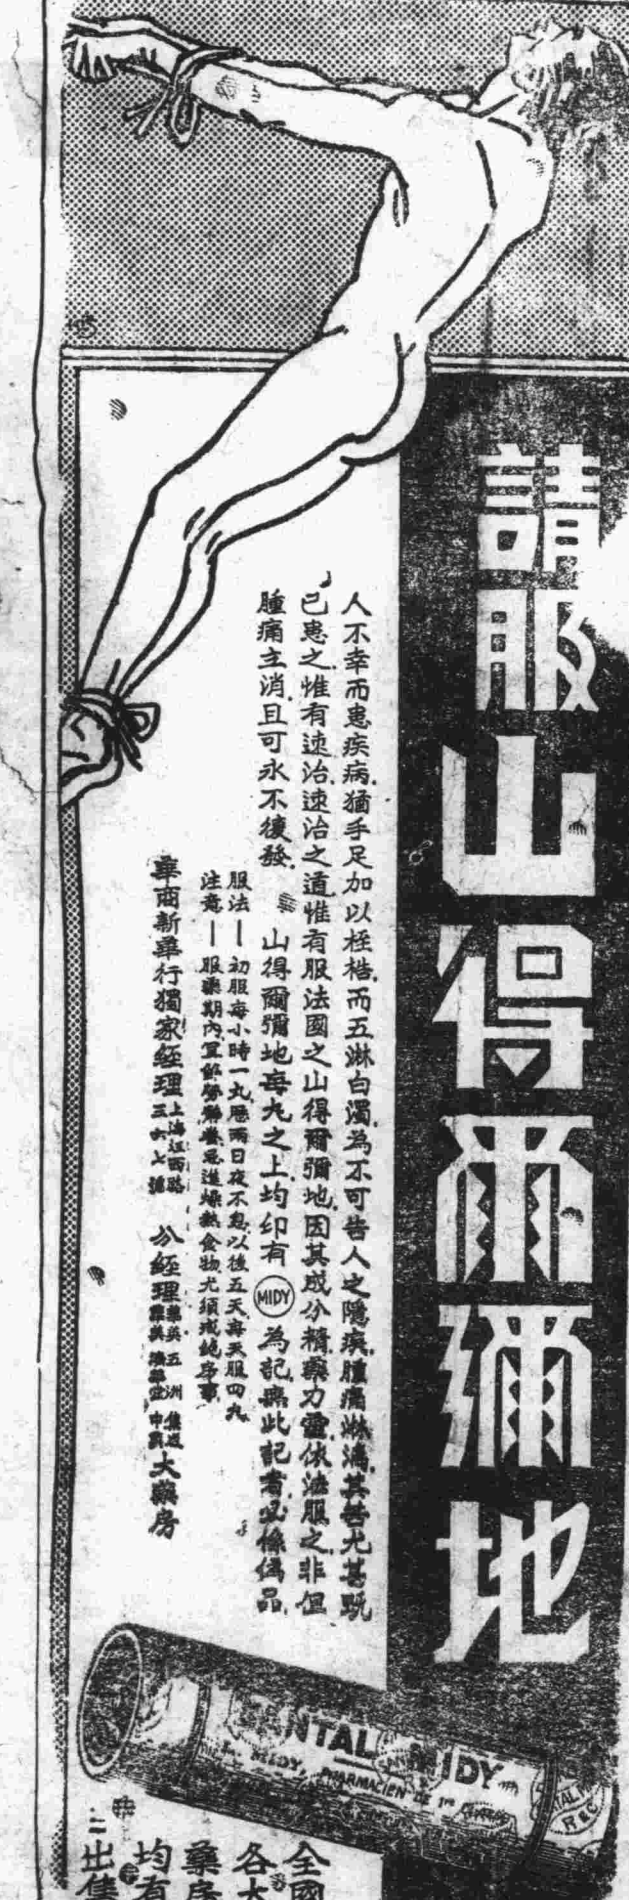 請服山得爾彌地
人不幸而患疾病.猶手足加以桎梏.而五淋白濁.為不可告人之隱疾.腫痛淋漓.其苦尤甚.既
已患之.惟有速治.速治之道.惟有服法國之山得爾彌地.因其成分精.藥力靈.依法服之.非但
腫痛立消.且可永不復發.
山得爾彌地每丸之上均印有 MIDY 為記.無此記者.必係偽品.
服法—初服每小時一丸.歷兩日夜不息.以後五天.每天服四丸
注意—服藥期內.燥熱食物.尤須戒絕房事.
華商新華行獨家經理 上海江西路
分經理 五洲 大藥房
SANTAL MIDY
MIDY, PHARMACIEN DE 1re
全國
各大
藥房
均有
出售